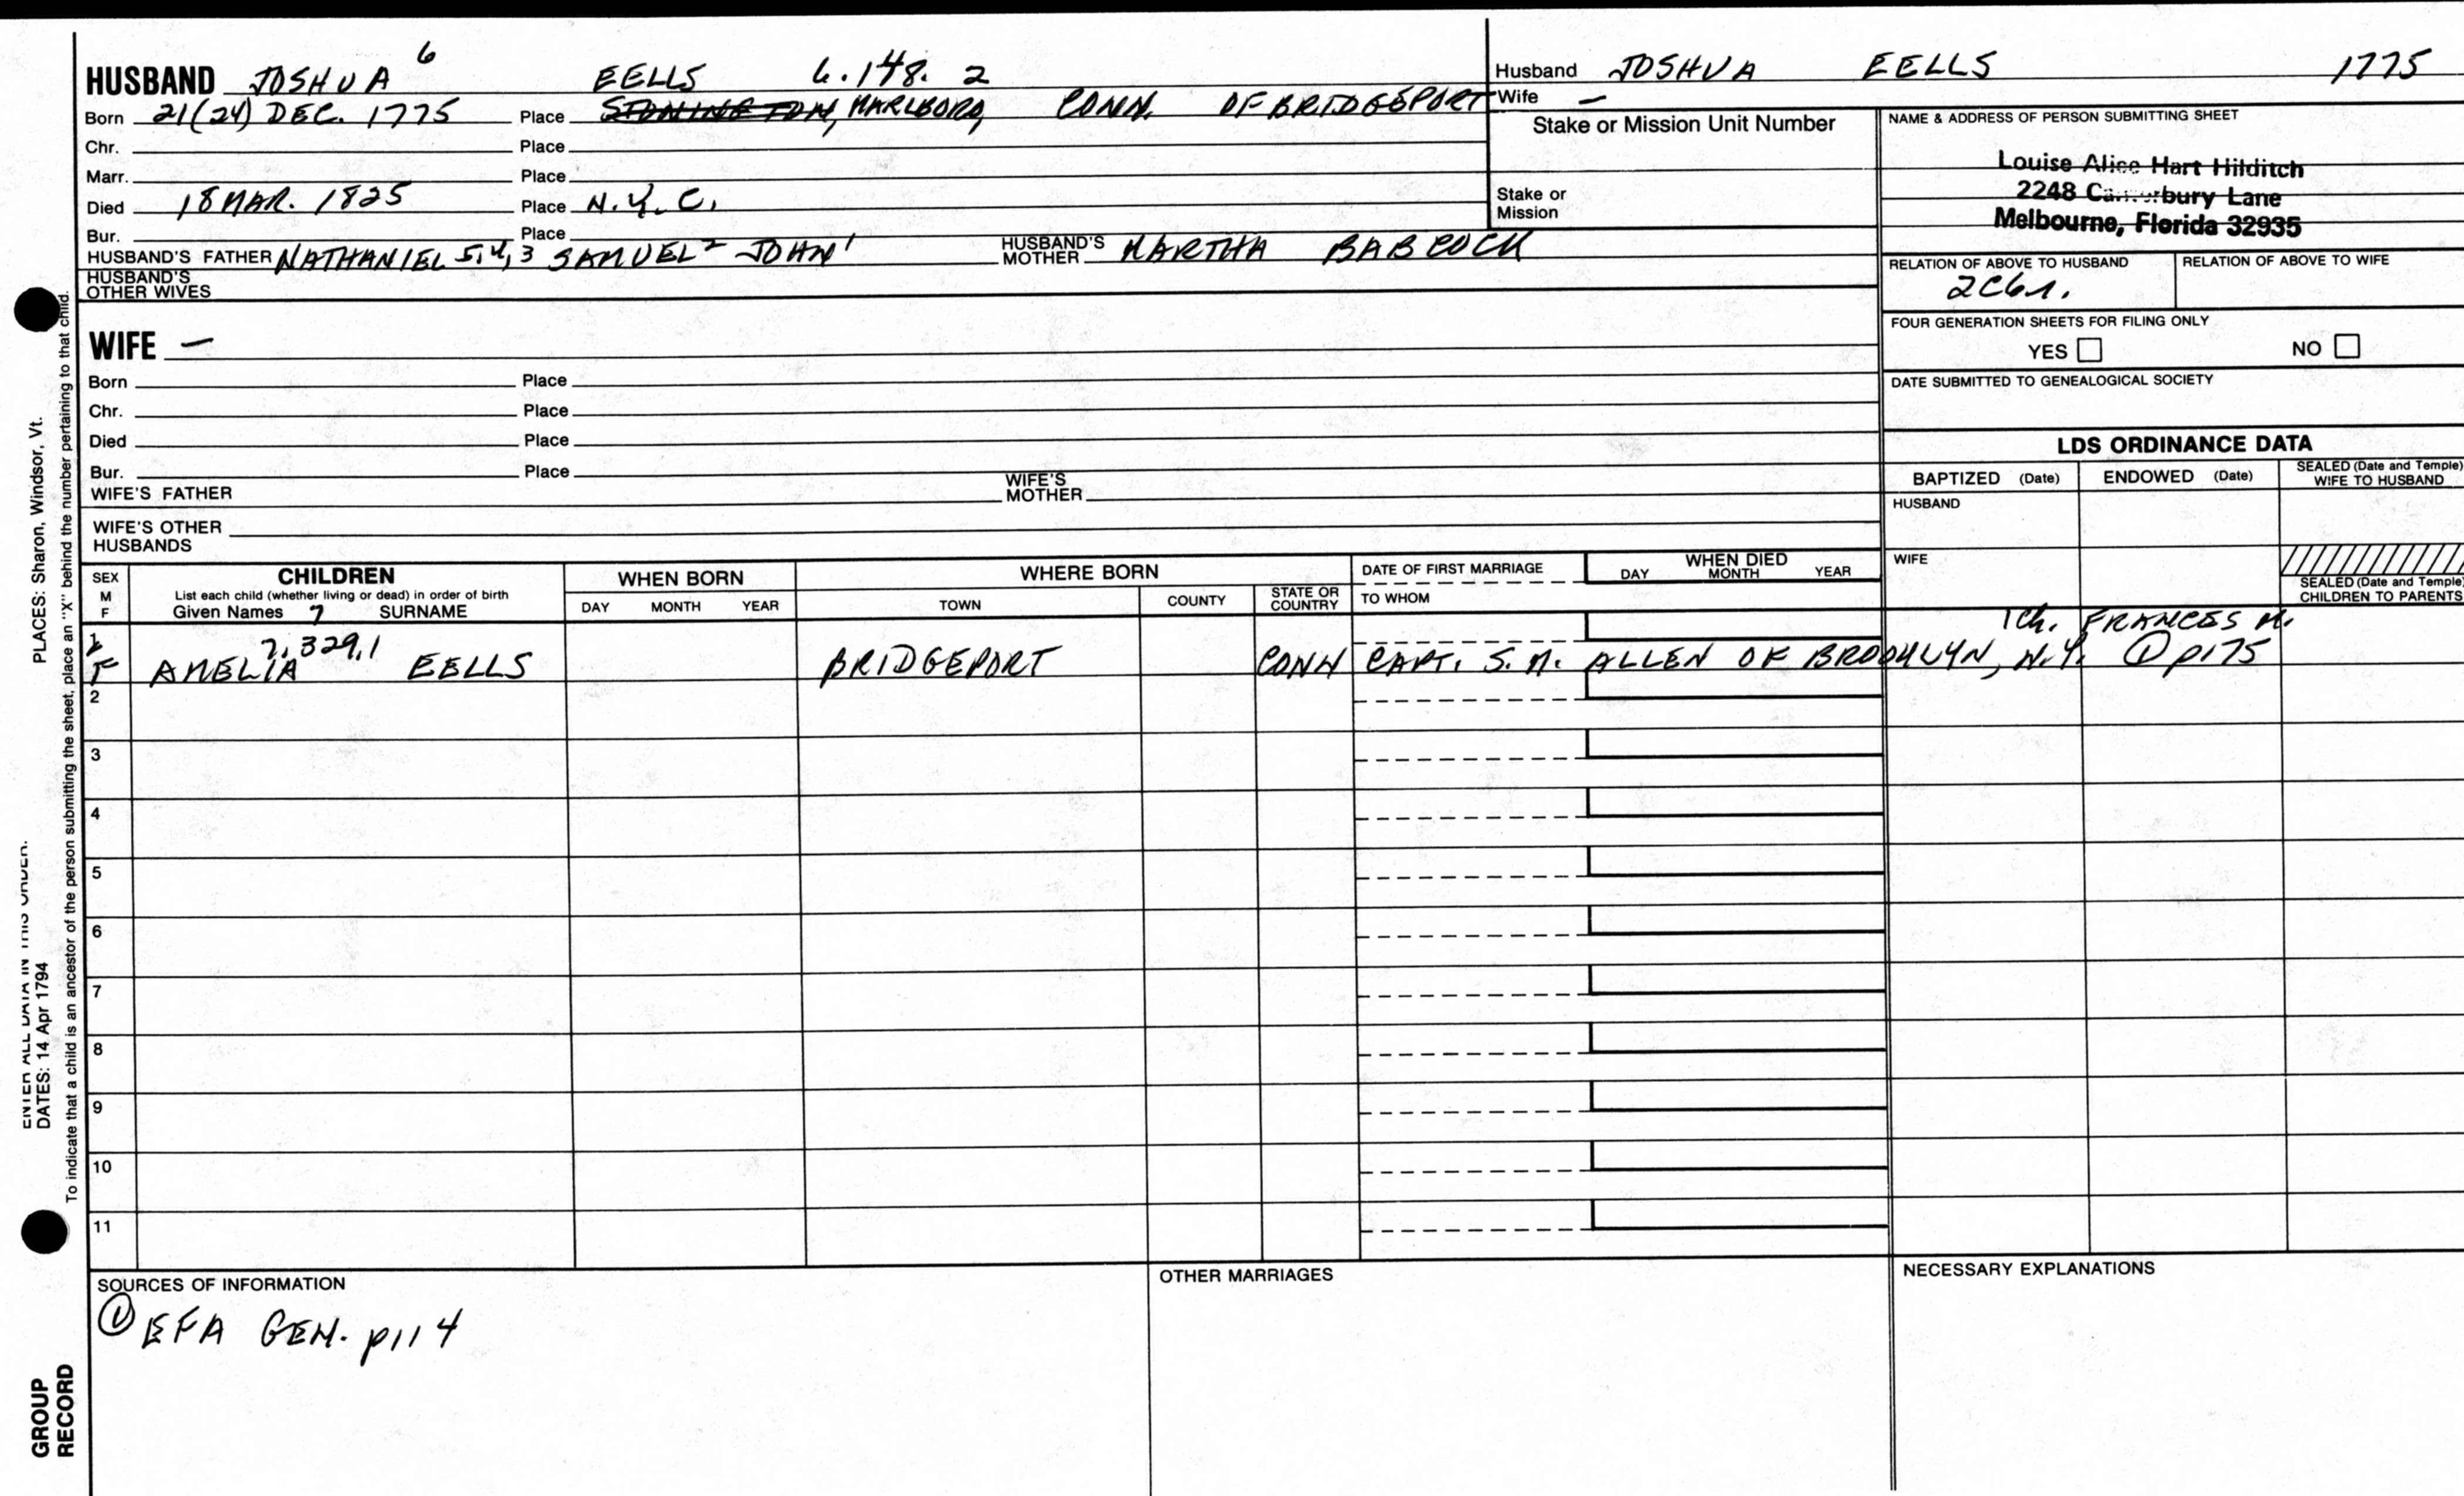 HUSBAND JOSHUA 6 EELLS 6.148.2
Husband JOSHUA EELLS 1775
Wife —
Born 21(24) DEC. 1775 Place STONINGTON, MARLBORO, CONN. OF BRIDGEPORT
Chr. Place
Marr. Place
Died 18 MAR. 1825 Place N.Y.C.
Bur. Place
HUSBAND'S FATHER NATHANIEL 5,4,3 SAMUEL 2 JOHN 1 HUSBAND'S MOTHER MARTHA BABCOCK
HUSBAND'S OTHER WIVES
Stake or Mission Unit Number
Stake or Mission
NAME & ADDRESS OF PERSON SUBMITTING SHEET
Louise Alice Hart Hilditch
2248 Canterbury Lane
Melbourne, Florida 32935
RELATION OF ABOVE TO HUSBAND RELATION OF ABOVE TO WIFE
2C6r.
FOUR GENERATION SHEETS FOR FILING ONLY
YES NO
DATE SUBMITTED TO GENEALOGICAL SOCIETY
WIFE —
Born Place
Chr. Place
Died Place
Bur. Place
WIFE'S FATHER WIFE'S MOTHER
WIFE'S OTHER HUSBANDS
LDS ORDINANCE DATA
BAPTIZED (Date) ENDOWED (Date) SEALED (Date and Temple) WIFE TO HUSBAND
HUSBAND
WIFE
SEALED (Date and Temple) CHILDREN TO PARENTS
SEX M F CHILDREN
List each child (whether living or dead) in order of birth
Given Names 7 SURNAME
WHEN BORN
DAY MONTH YEAR
WHERE BORN
TOWN COUNTY STATE OR COUNTRY
DATE OF FIRST MARRIAGE
TO WHOM
WHEN DIED
DAY MONTH YEAR
1 7.329.1 1ch. FRANCES M.
F AMELIA EELLS BRIDGEPORT CONN CAPT. S. M. ALLEN OF BROOKLYN, N.Y. ① p175
2
3
4
5
6
7
8
9
10
11
SOURCES OF INFORMATION
① EFA GEN. p114
OTHER MARRIAGES
NECESSARY EXPLANATIONS
PLACES: Sharon, Windsor, Vt.
ENTER ALL DATA IN THIS ORDER.
DATES: 14 Apr 1794
To indicate that a child is an ancestor of the person submitting the sheet, place an "X" behind the number pertaining to that child.
GROUP
RECORD